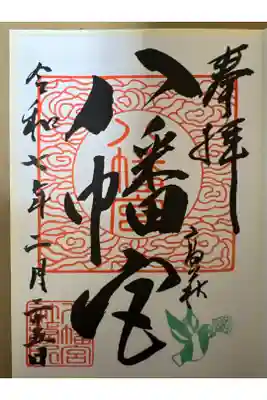 奉拝
高萩
八幡宮
八幡宮
令和七年二月二十五日